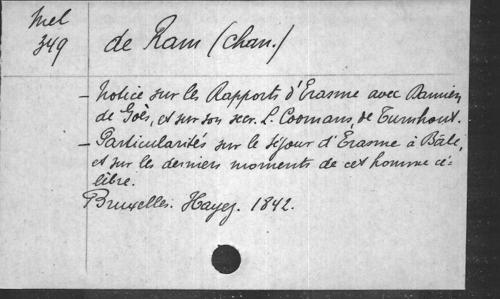 Mel
349
de Ram (chan.)
- Notice sur les Rapports d'Érasme avec Damien
de Goès, et sur son secr. L. Coomans, de Turnhout.
- Particularités sur le séjour d'Érasme à Bâle,
et sur les derniers moments de cet homme cé-
lèbre.
Bruxelles. Hayez. 1842.